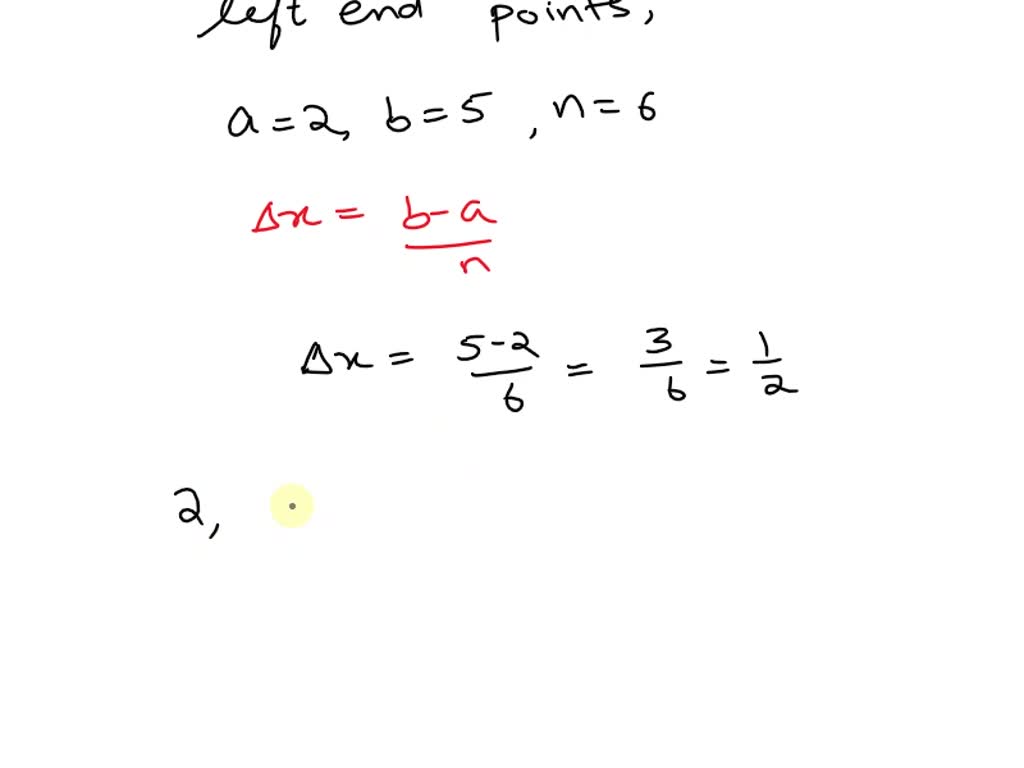 left end points,
a = 2, b = 5 , n = 6
Δx = b-a / n
Δx = 5-2 / 6 = 3 / 6 = 1 / 2
2,